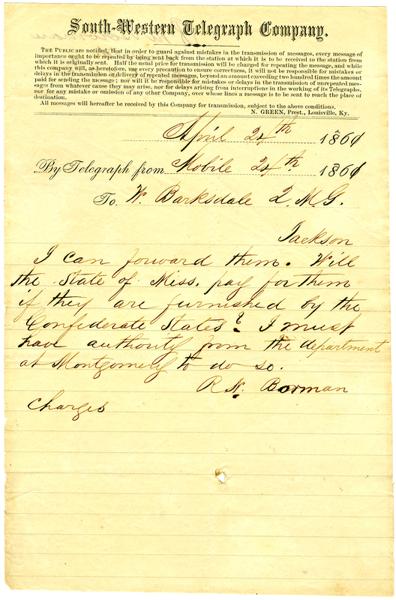 South-Western Telegraph Company.
THE PUBLIC are notified, that in order to guard against mistakes in the transmission of messages, every message of
importance ought to be repeated by being sent back from the station at which it is to be received to the station from
which it is originally sent. Half the usual price for transmission will be charged for repeating the message, and while
this company will, as heretofore, use every precaution to ensure correctness, it will not be responsible for mistakes or
delays in the transmission or delivery of repeated messages, beyond an amount exceeding two hundred times the amount
paid for sending the message; nor will it be responsible for mistakes or delays in the transmission of unrepeated mes-
sages from whatever cause they may arise, nor for delays arising from interruptions in the working of its Telegraphs,
nor for any mistake or omission of any other Company, over whose lines a message is to be sent to reach the place of
destination.
All messages will hereafter be received by this Company for transmission, subject to the above conditions.
N. GREEN, Prest., Louisville, Ky.
April 24th 1861
By Telegraph from Mobile 24th. 1861
To W. Barksdale Q.M.G.
Jackson
I can forward them. Will
the State of Miss. pay for them
if they are furnished by the
Confederate States? I must
have authority from the department
at Montgomery to do so.
R N. Borman
Charges